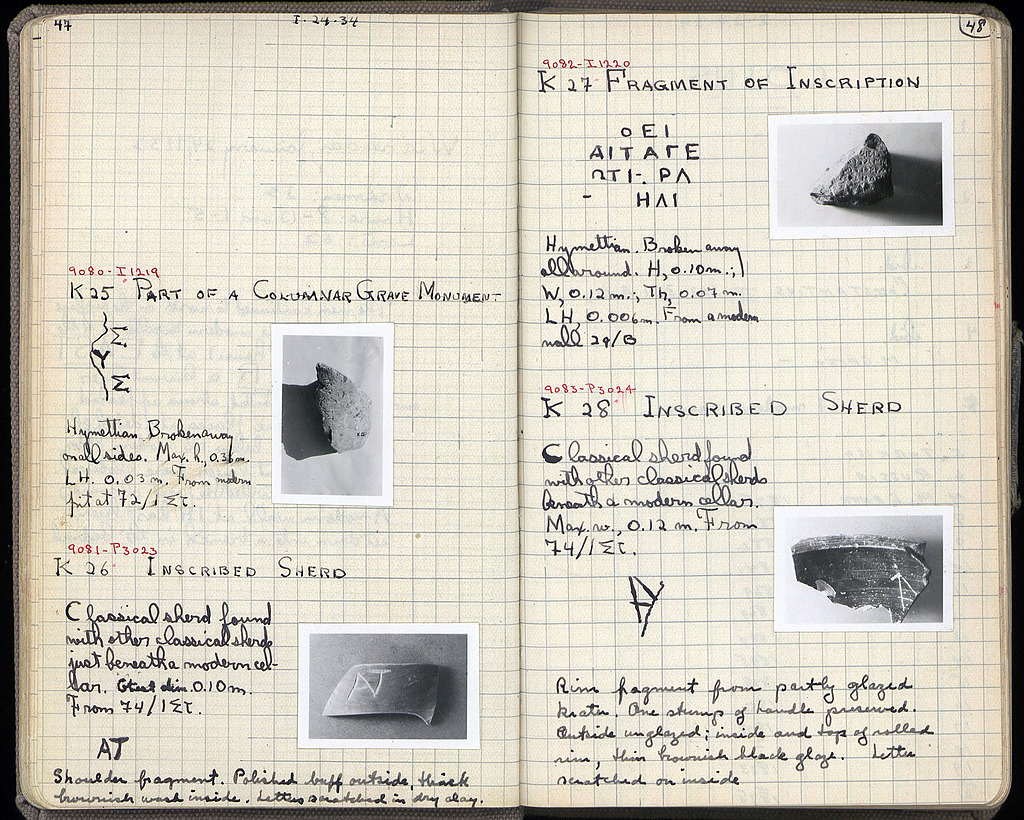 47
I-24-34
9080-I1219
K 25 PART OF A COLUMNAR GRAVE MONUMENT
Σ
Υ
Σ
Hymettian. Broken away
on all sides. Max. h., 0.36m.
LH. 0.03 m. From modern
pit at 72/ΙΣΤ.
9081-P3023
K 26 INSCRIBED SHERD
Classical sherd found
with other classical sherds
just beneath a modern cel-
lar. Gtest dim. 0.10 m.
From 74/ΙΣΤ.
AT
Shoulder fragment. Polished buff outside, thick
brownish wash inside. Letters scratched in dry clay.
48
9082-I1220
K 27 FRAGMENT OF INSCRIPTION
ΟΕΙ
ΑΙΤΑΓΕ
ΩΤΙ-ΡΛ
- ΗΛΙ
Hymettian. Broken away
all around. H, 0.10m.;
W, 0.12 m.; Th, 0.07 m.
LH, 0.006m. From a modern
wall 29/Β
9083-P3024
K 28 INSCRIBED SHERD
Classical sherd found
with other classical sherds
beneath a modern cellar.
Max. w., 0.12 m. From
74/ΙΣΤ.
Rim fragment from partly glazed
krater. One stump of handle preserved.
Outside unglazed; inside and top of rolled
rim, thin brownish black glaze. Letter
scratched on inside